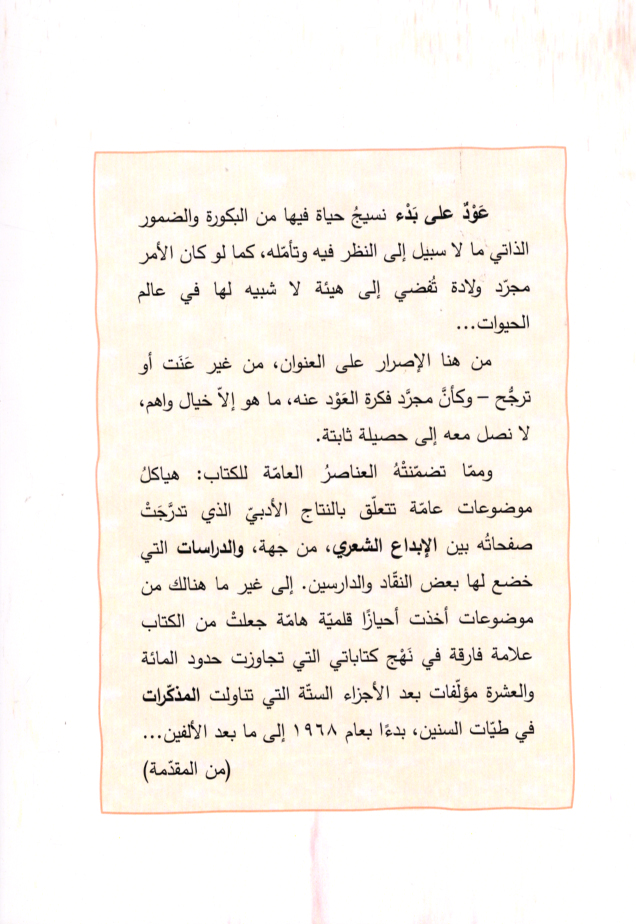 عَوْدٌ على بَدْء نسيجُ حياة فيها من البكورة والضمور
الذاتي ما لا سبيل إلى النظر فيه وتأمّله، كما لو كان الأمر
مجرّد ولادة تُفضي إلى هيئة لا شبيه لها في عالم
الحيوات...
من هنا الإصرار على العنوان، من غير عَنَت أو
ترجُّح – وكأنَّ مجرَّد فكرة العَوْد عنه، ما هو إلاّ خيال واهم،
لا نصل معه إلى حصيلة ثابتة.
وممّا تضمّنتْهُ العناصرُ العامّة للكتاب: هياكلُ
موضوعات عامّة تتعلّق بالنتاج الأدبيّ الذي تدرَّجَتْ
صفحاتُه بين الإبداع الشعري، من جهة، والدراسات التي
خضع لها بعض النقّاد والدارسين. إلى غير ما هنالك من
موضوعات أخذت أحيازًا قلميّة هامّة جعلتْ من الكتاب
علامة فارقة في نَهْج كتاباتي التي تجاوزت حدود المائة
والعشرة مؤلّفات بعد الأجزاء الستّة التي تناولت المذكّرات
في طيّات السنين، بدءًا بعام ١٩٦٨ إلى ما بعد الألفين...
(من المقدّمة)